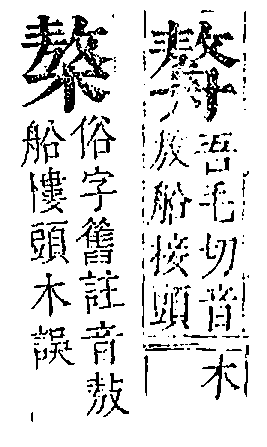 吾毛切音
敖船接頭
木
俗字舊註音敖
船慺頭木誤